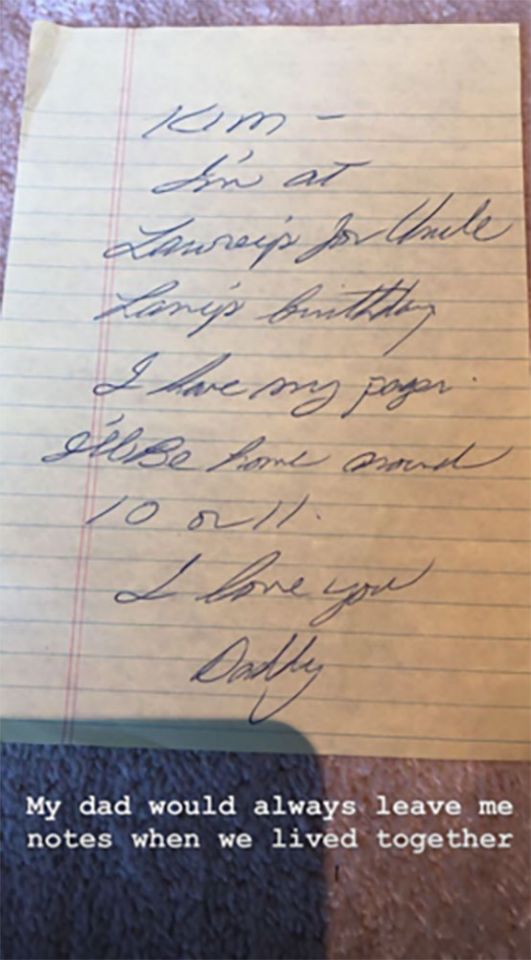 Kim –
I'm at
for Uncle
birthday
I have my pager.
I'll Be home around
10 or 11.
I love you
Daddy
My dad would always leave me
notes when we lived together